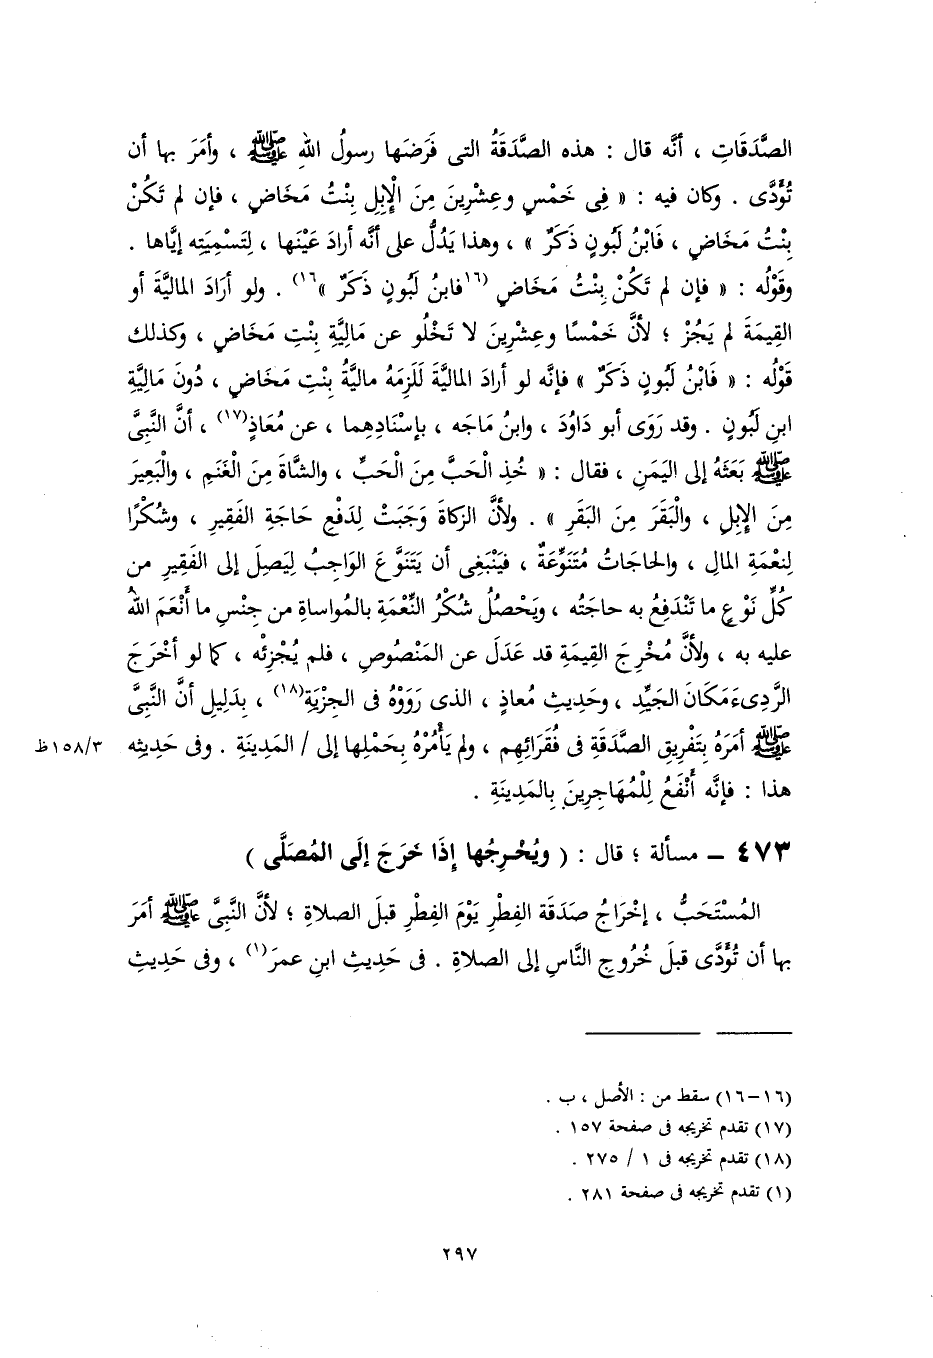 الصَّدَقَاتِ ، أنَّه قال : هذه الصَّدَقَةُ التى فَرَضَها رسولُ اللهِ ﷺ ، وأمَرَ بها أن
تُؤَدَّى . وكان فيه : « فِى خَمْسٍ وعِشْرِينَ مِنَ الْإِبِلِ بِنْتُ مَخَاضٍ ، فإن لم تَكُنْ
بِنْتُ مَخَاضٍ ، فَابْنُ لَبُونٍ ذَكَرٌ » ، وهذا يَدُلُّ على أنَّه أرادَ عَيْنَها ، لِتَسْمِيَتِه إيَّاها .
وقَوْلُه : « فإن لم تَكُنْ بِنْتُ مَخَاضٍ (١٦فابنُ لَبُونٍ ذَكَرٌ »١٦) . ولو أرَادَ المالِيَّةَ أو
القِيمَةَ لم يَجُزْ ؛ لأنَّ خَمْسًا وعِشْرِينَ لا تَخْلُو عن مَالِيَّةِ بِنْتِ مَخَاضٍ ، وكذلك
قَوْلُه : « فَابْنُ لَبُونٍ ذَكَرٌ » فإنَّه لو أرادَ المالِيَّةَ لَلَزِمَهُ مالِيَّةُ بِنْتِ مَخَاضٍ ، دُونَ مَالِيَّةِ
ابنِ لَبُونٍ . وقد رَوَى أبو دَاوُدَ ، وابنُ مَاجَه ، بإسْنَادِهِما ، عن مُعَاذٍ(١٧) ، أنَّ النَّبِىَّ
ﷺ بَعَثَهُ إلى اليَمَنِ ، فقال : « خُذِ الْحَبَّ مِنَ الْحَبِّ ، والشَّاةَ مِنَ الْغَنَمِ ، والْبَعِيرَ
مِنَ الإِبِلِ ، والْبَقَرَ مِنَ البَقَرِ » . ولأنَّ الزكاةَ وَجَبَتْ لِدَفْعِ حَاجَةِ الفَقِيرِ ، وشُكْرًا
لِنعْمَةِ المالِ ، والحاجَاتُ مُتَنَوِّعَةٌ ، فيَنْبَغِى أن يَتَنَوَّعَ الوَاجِبُ لِيَصِلَ إلى الفَقِيرِ من
كُلِّ نَوْعٍ ما تَنْدَفِعُ به حاجَتُه ، ويَحْصُلُ شُكْرُ النِّعْمَةِ بالمُواساةِ من جِنْسِ ما أنْعَمَ اللهُ
عليه به ، ولأنَّ مُخْرِجَ القِيمَةِ قد عَدَلَ عن المَنْصُوصِ ، فلم يُجْزِئْه ، كما لو أخْرَجَ
الرَّدِىءَ مَكَانَ الجَيِّدِ ، وحَدِيثِ مُعاذٍ ، الذى رَوَوْهُ فى الجِزْيَةِ(١٨) ، بِدَلِيلِ أنَّ النَّبِىَّ
ﷺ أمَرَهُ بِتَفْرِيقِ الصَّدَقَةِ فى فُقَرَائِهِم ، ولم يَأْمُرْهُ بِحَمْلِها إلى / المَدِينَةِ . وفى حَدِيثِه ٣/١٥٨ظ
هذا : فإنَّه أنْفَعُ لِلْمُهَاجِرِينَ بِالمَدِينَةِ .
٤٧٣ – مسألة ؛ قال : ( ويُخْرِجُها إذَا خَرَجَ إلَى المُصَلَّى )
المُسْتَحَبُّ ، إخْرَاجُ صَدَقَة الفِطْرِ يَوْمَ الفِطْرِ قبلَ الصلاةِ ؛ لأنَّ النَّبِىَّ ﷺ أمَرَ
بها أن تُؤَدَّى قبلَ خُرُوجِ النَّاسِ إلى الصلاةِ . فى حَدِيثِ ابنِ عمرَ(١) ، وفى حَدِيثِ
(١٦-١٦) سقط من : الأصل ، ب .
(١٧) تقدم تخريجه فى صفحة ١٥٧ .
(١٨) تقدم تخريجه فى ١ / ٢٧٥ .
(١) تقدم تخريجه فى صفحة ٢٨١ .
٢٩٧